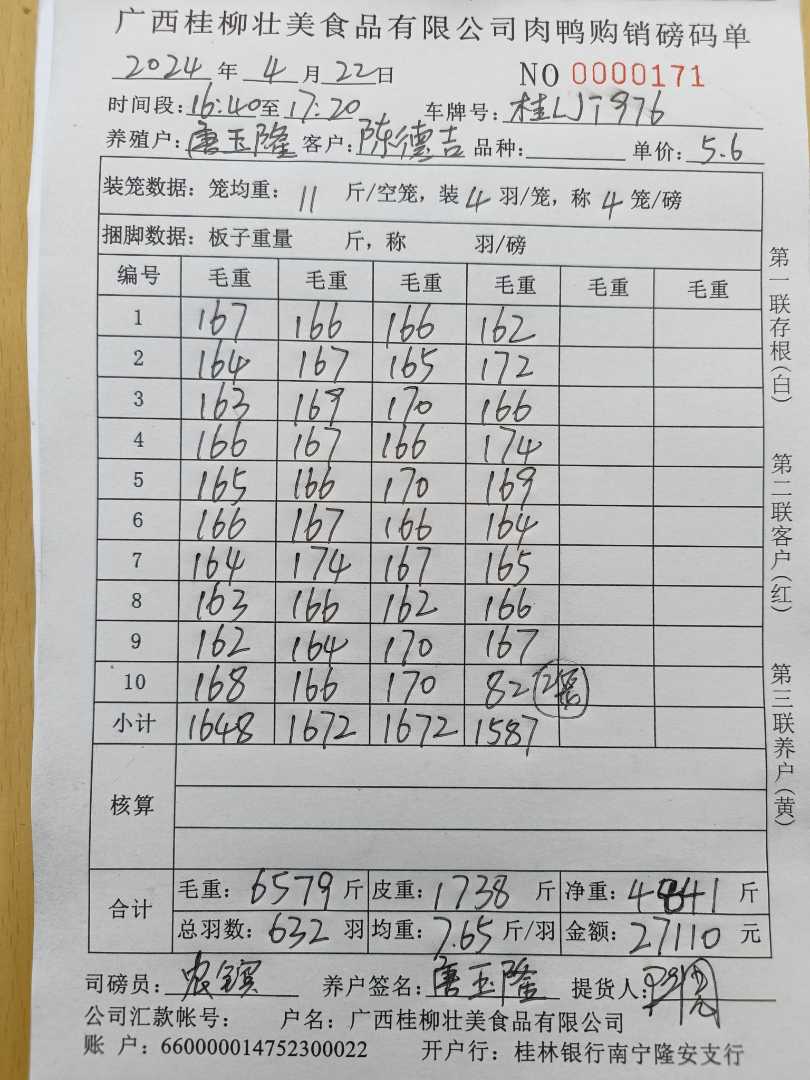 广西桂柳壮美食品有限公司肉鸭购销磅码单
2024 年 4 月 22 日 NO 0000171
时间段: 16:40 至 17:20 车牌号: 桂LJT976
养殖户: 唐玉隆 客户: 陈德吉 品种: 单价: 5.6
装笼数据: 笼均重: 11 斤/空笼, 装 4 羽/笼, 称 4 笼/磅
捆脚数据: 板子重量 斤, 称 羽/磅
编号 毛重 毛重 毛重 毛重 毛重 毛重
1 167 166 166 162
2 164 167 165 172
3 163 169 170 166
4 166 167 166 174
5 165 166 170 169
6 166 167 166 164
7 164 174 167 165
8 163 166 162 166
9 162 164 170 167
10 168 166 170 82
小计 1648 1672 1672 1587
核算
合计 毛重: 6579 斤 皮重: 1738 斤 净重: 4841 斤
总羽数: 632 羽 均重: 7.65 斤/羽 金额: 27110 元
司磅员: 养户签名: 唐玉隆 提货人:
公司汇款帐号: 户名: 广西桂柳壮美食品有限公司
账 户: 660000014752300022 开户行: 桂林银行南宁隆安支行
第一联存根(白) 第二联客户(红) 第三联养户(黄)